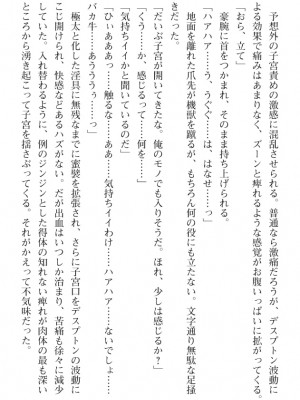 予想外の子宮責めの激感に混乱させられる。普通なら激痛だろうが、デスプトン波動に
よる効果で痛みはあまりなく、ズーンと痺れるような感覚がお腹いっぱいに拡がってくる。
「おら、立て」
「ハアハア……う、うぐぐ……は、はなせ……っ」
豪腕に首をつかまれ、そのまま持ち上げられる。
地面を離れた爪先が機獣を蹴るが、もちろん何の役にも立たない。文字通り無駄な足掻
きだった。
「だいぶ子宮が開いてきたな。俺のモノでも入りそうだ。ほれ、少しは感じるか?」
「くう……か、感じるって……何を……」
「気持ちイイかと聞いているのだ」
「ひぃああぁっ……触るな……ああ……気持ちイイわけ……ハアハア……ないでしょ……
バカ牛……あううぅぅ……っ」
極太と化した淫具に無残なまでに蜜襞を拡張され、さらに子宮口をデスプトンの波動に
こじ開けられ、快感などあるハズがない。だが出血はいつしか治まり、苦痛も徐々に減少
していた。入れ替わるように、例のジンジンとした得体の知れない痺れが肉体の最も深い
ところから湧き起こって子宮を揺さぶってくる。それがかえって不気味だった。